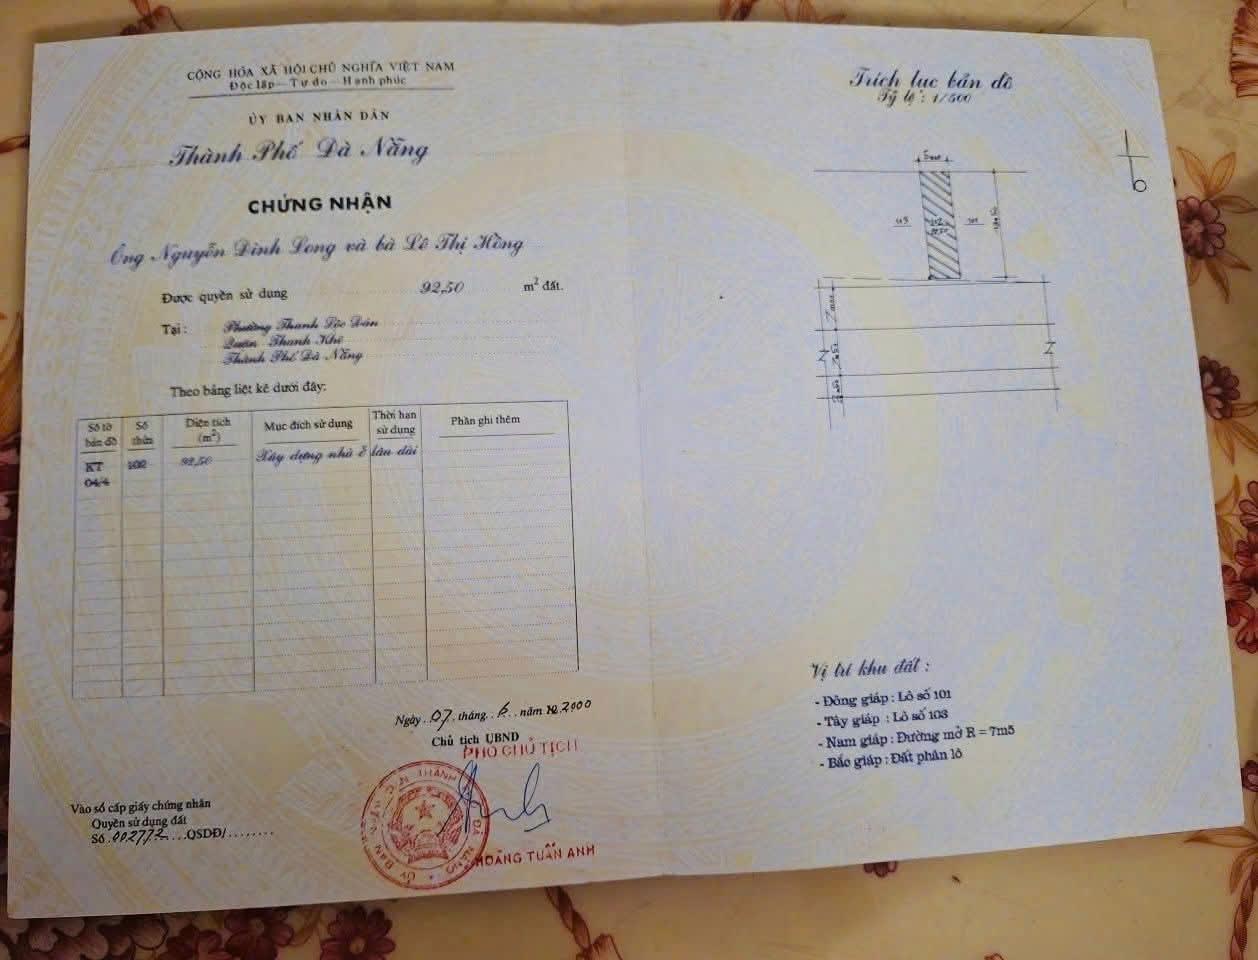 CỘNG HÒA XÃ HỘI CHỦ NGHĨA VIỆT NAM
Độc lập — Tự do — Hạnh phúc
ỦY BAN NHÂN DÂN
Thành Phố Đà Nẵng
CHỨNG NHẬN
Ông Nguyễn Đình Long và bà Lê Thị Hồng
Được quyền sử dụng 92,50 m² đất.
Tại : Phường Thanh Lộc Đán
Quận Thanh Khê
Thành Phố Đà Nẵng
Theo bảng liệt kê dưới đây:
Số tờ bản đồ Số thửa Diện tích (m²) Mục đích sử dụng Thời hạn sử dụng Phần ghi thêm
KT 102 92,50 Xây dựng nhà ở lâu dài
04/4
Ngày 07 tháng 6 năm 2000
Chủ tịch UBND
PHÓ CHỦ TỊCH
HOÀNG TUẤN ANH
Vào sổ cấp giấy chứng nhận
Quyền sử dụng đất
Số 002772 QSDĐ/
Trích lục bản đồ
Tỷ lệ : 1/500
102
Vị trí khu đất :
- Đông giáp : Lô số 101
- Tây giáp : Lô số 103
- Nam giáp : Đường mở R = 7m5
- Bắc giáp : Đất phân lô